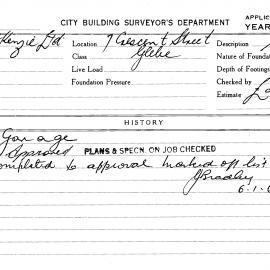 CITY BUILDING SURVEYOR'S DEPARTMENT
APPLIC
YEAR
kenzie Ltd Location 7 Crescent Street Description
Class Glebe Nature of Foundat
Live Load Depth of Footings
Foundation Pressure Checked by
Estimate
HISTORY
Garage
Approved PLANS & SPECN. ON JOB CHECKED
ompleted to approval marked off list
JBradley
6.1.6